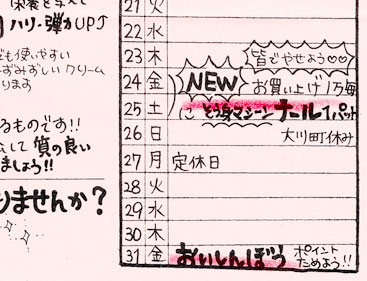 栄養を与えて
ハリ・弾力UP♪
も使いやすい
ずみずしい クリーム
ります
るものです!!
して 質の良い
ましょう!!
りませんか?
21 火
22 水
23 木
皆でやせよう♡♡
24 金 NEW お買い上げ1万毎
25 土 に そう身マシーン ナール1パット
26 日 大川町休み
27 月 定休日
28 火
29 水
30 木
31 金 おいしんぼう ポイント
ためよう!!